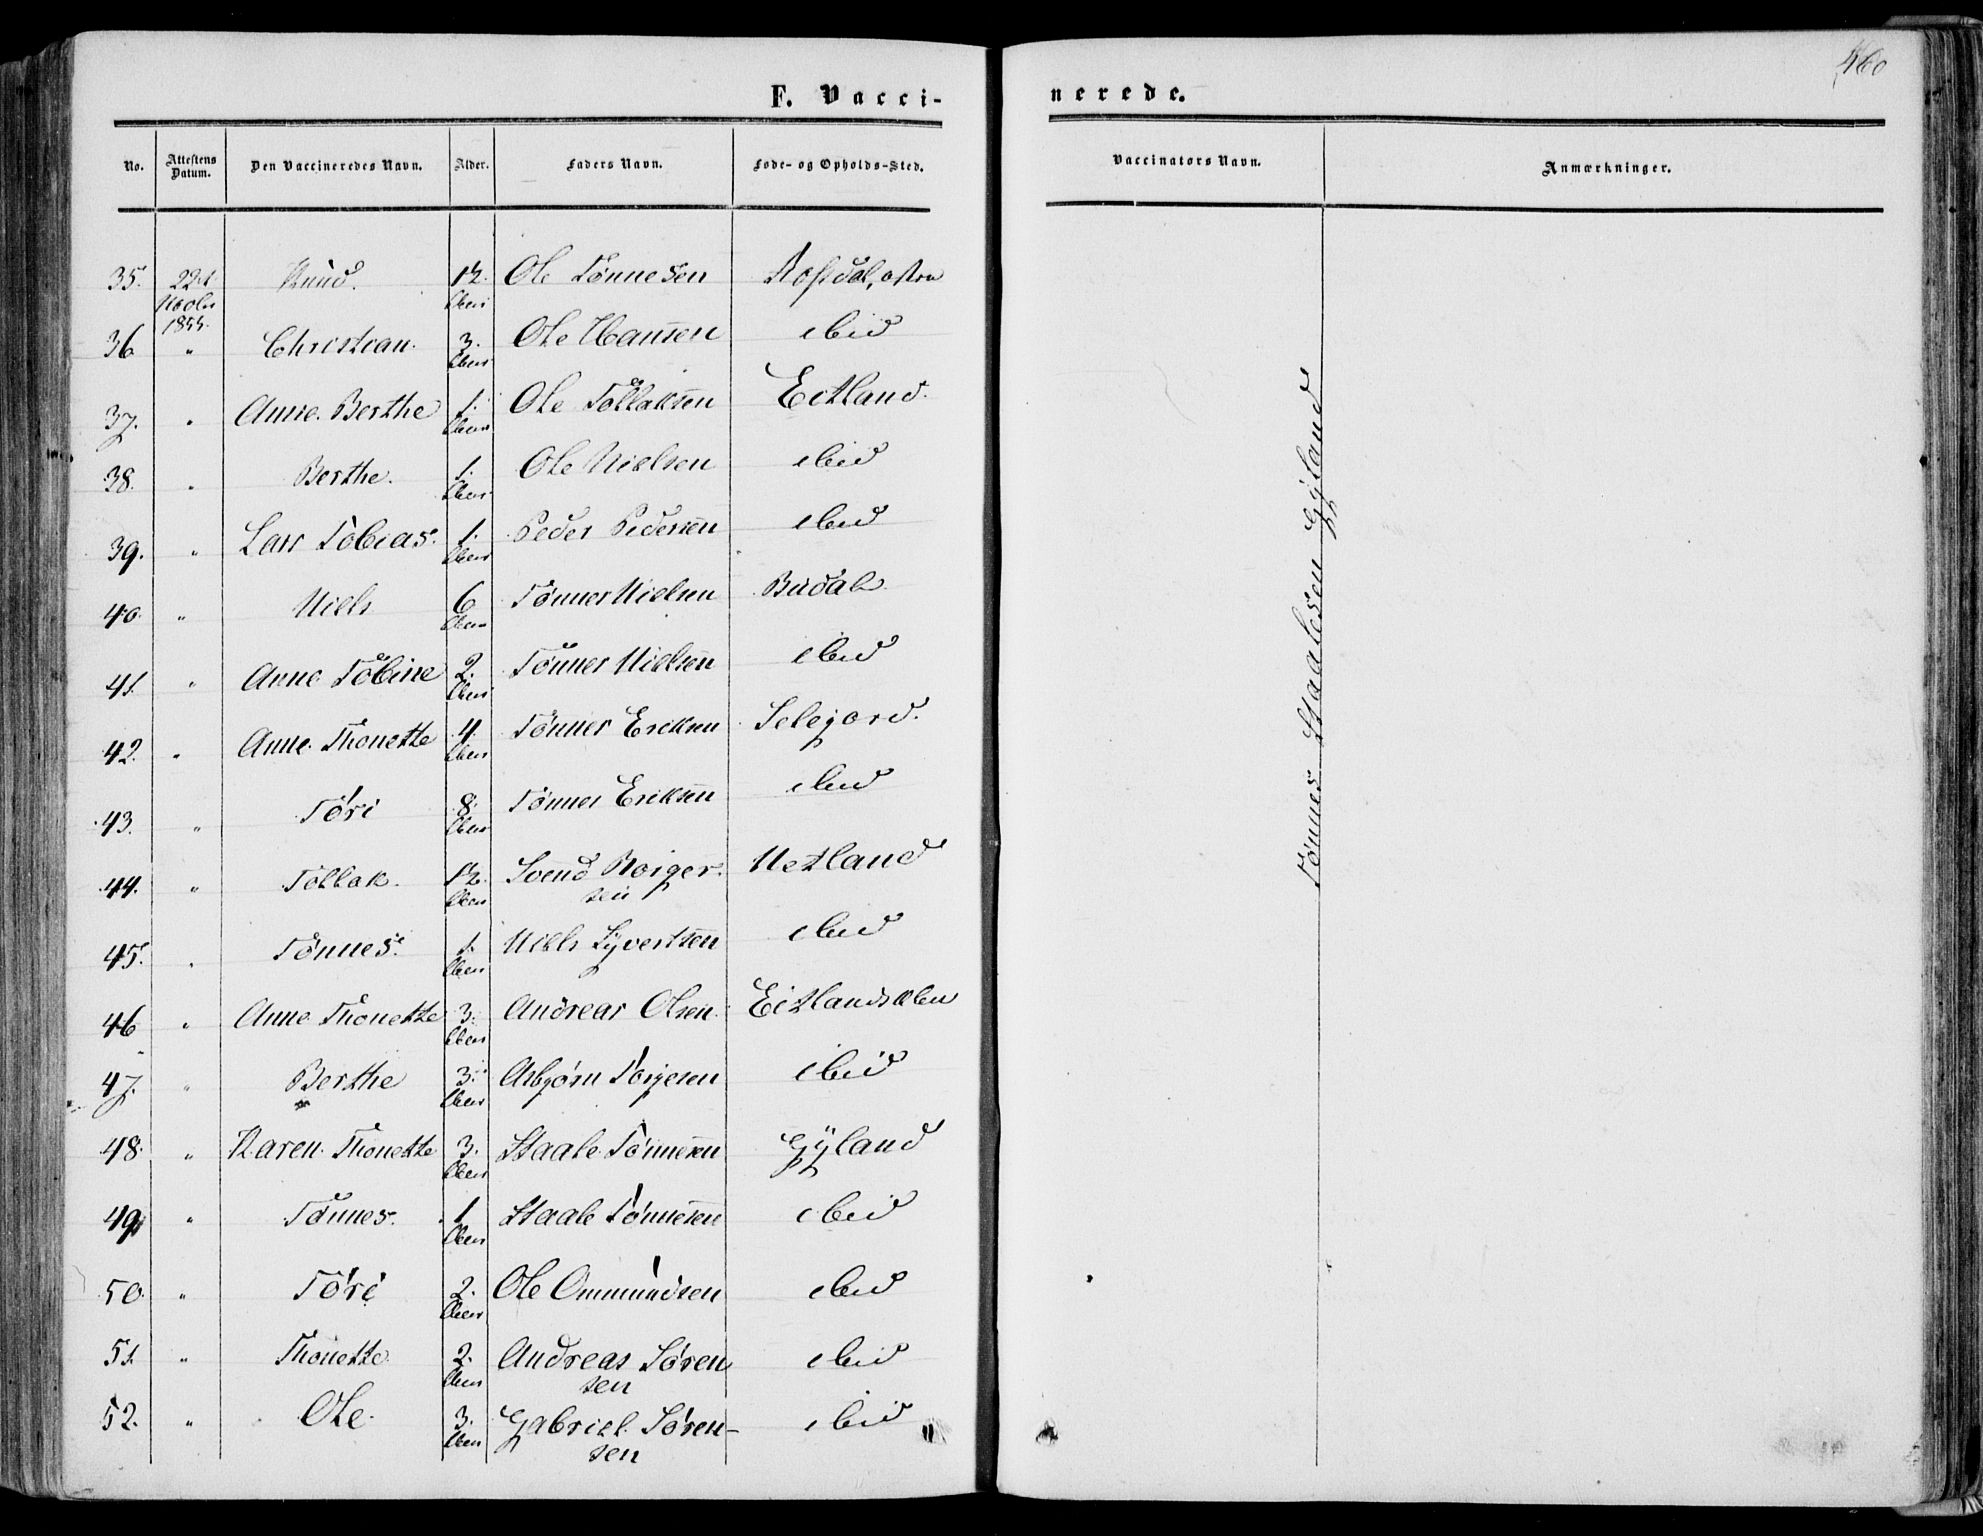 460
F. Vacci-
nerede.
No. Attestens Datum. Den Vaccineredes Navn. Alder. Faders Navn. Føde- og Opholds-Sted. Vaccinators Navn. Anmærkninger.
35. 22d Knud. 12. Aar Ole Tønnesen
1855.
36 " Christian. 3. Aar Ole Hansen ibid
37. " Anne Berthe 1. Aar Ole Tollaksen Eitland.
38. " Berthe. 1. Aar Ole Nielsen ibid
39. " Lars Tobias. 1. Aar Peder Pedersen ibid
40. " Niels 6 Aar Tønnes Nielsen Birdal
41. " Anne Tobine 2. Aar Tønnes Nielsen ibid
42. " Anne Thonette 4 Aar Tønnes Eriksen Selejord.
43. " Tøri 8. Aar Tønnes Eriksen ibid
44. " Tollak. 12. Aar Svend Roiger-
sen Netland
45. " Tønnes. 1. Aar Niels Syvertsen ibid
46 " Anne Thonette 3. Aar Andreas Olsen
47. " Berthe 3. Aar Asbjørn Torjesen ibid
48. " Karen Thonette 3. Aar Staale Tønnesen Gyland
49. " Tønnes. 1 Aar Staale Tønnesen ibid
50. " Tøri 2. Aar Ole Ommundsen ibid
51. " Thonette. 2. Aar Andreas Søren
sen ibid
52. " Ole. 3. Aar Gabriel Søren-
sen ibid
Tønnes Staalesen Gyland